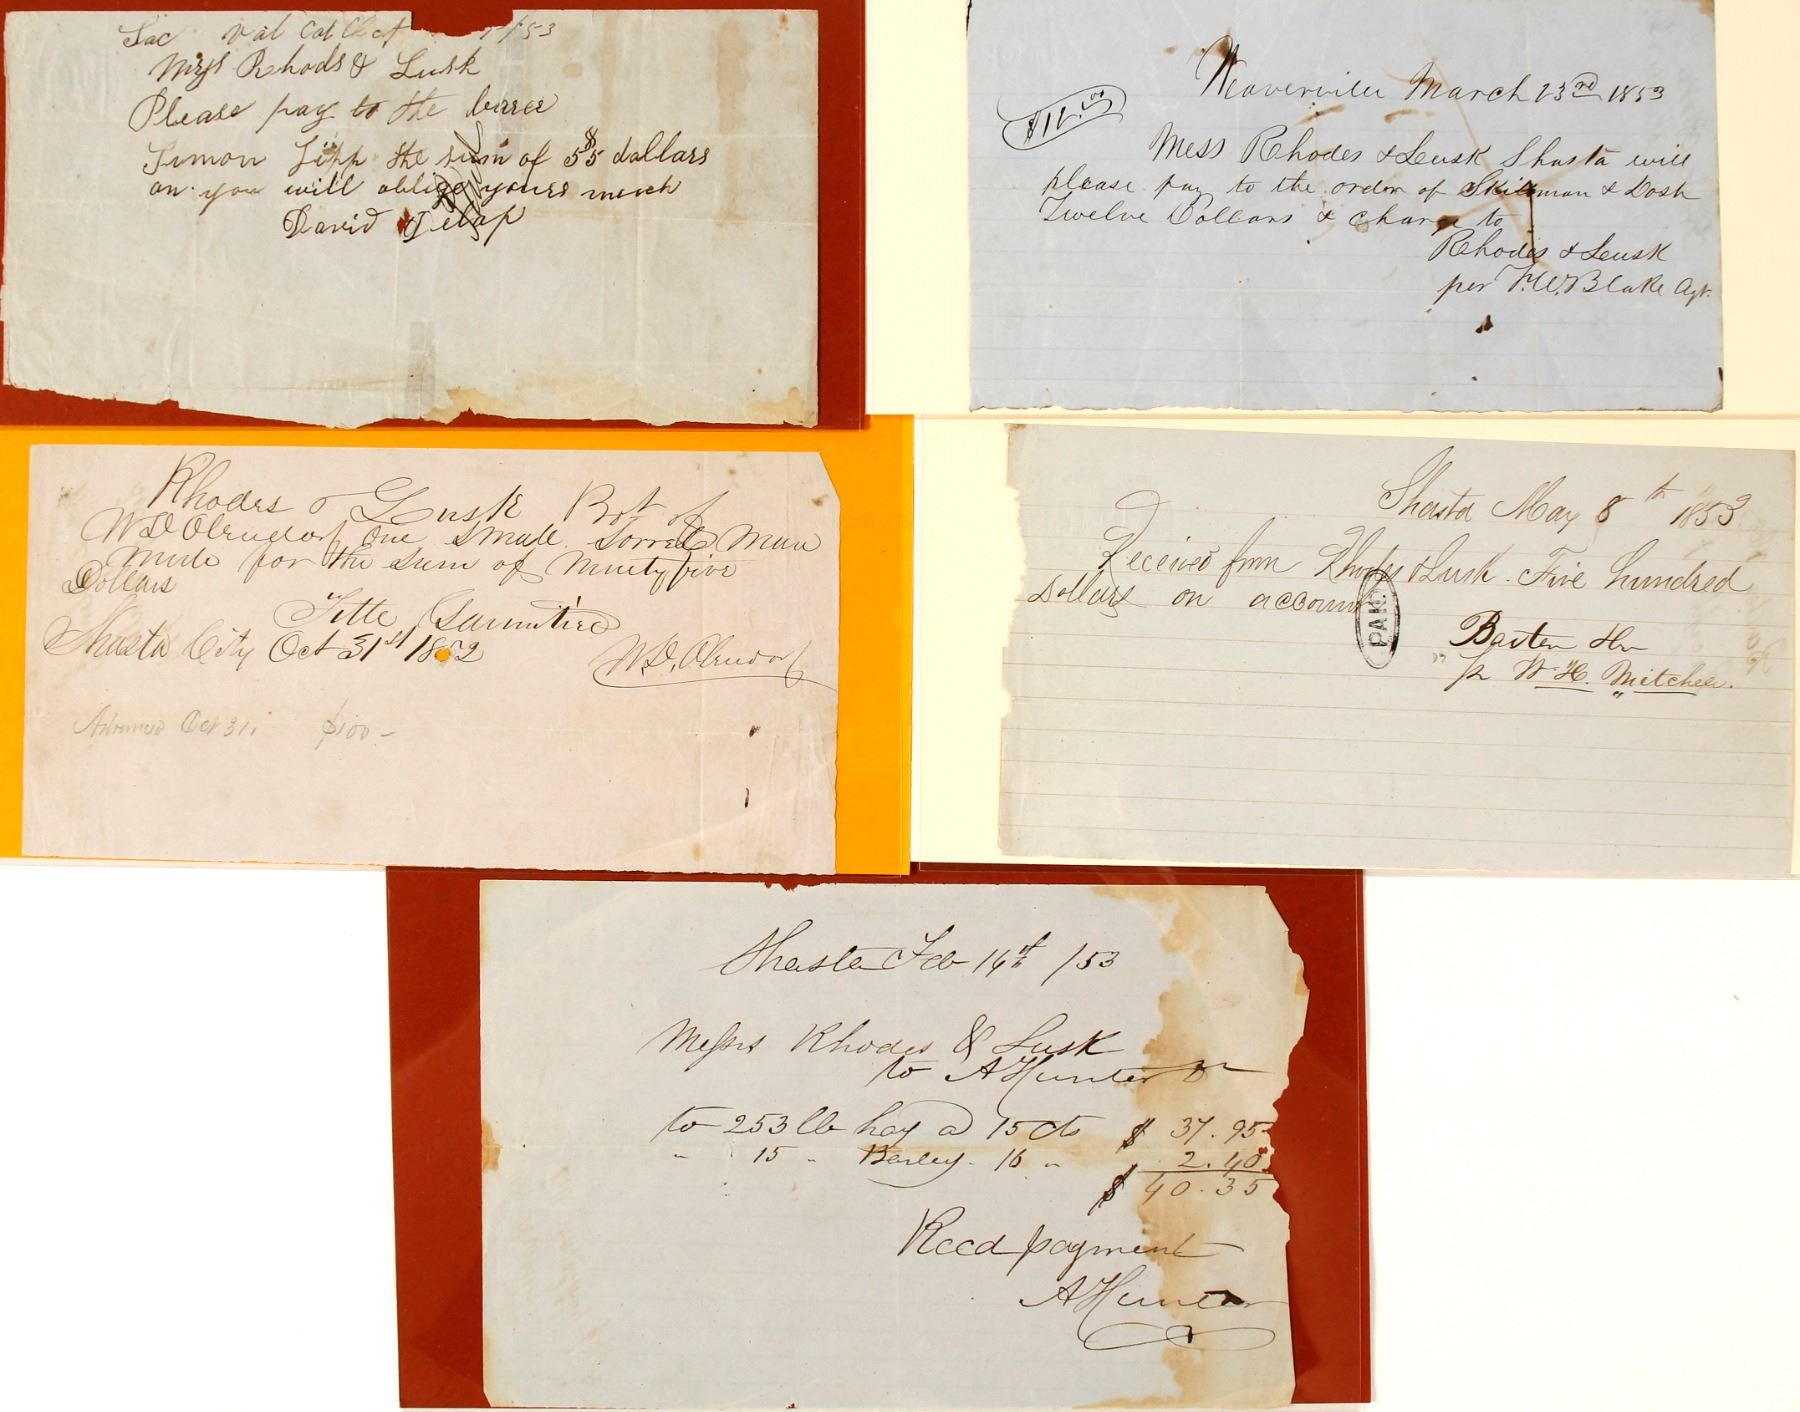 Sac Val Cal Oct /53
Messrs Rhods & Lusk
Please pay to the barer
Simon Lipp the sum of 55$ dollars
an you will oblige yours much
David
Weaverville March 23rd 1853
$12.00
Mess Rhodes & Lusk Shasta will
please pay to the order of Skillman & Dosh
Twelve Dollars & charge to
Rhodes & Lusk
per F.W. Blake Agt.
Rhodes & Lusk Bot of
W D Olendorf One Small Sorrell Mare
Mule for the sum of Ninety five
Dollars
Title
Shasta City Oct 31st 1852
W.D. Olendorf
Advanced Oct 31. $100-
Shasta May 8th 1853
Received from Rhodes & Lusk. Five hundred
Dollars on account
PAID
Baxter
W. H. Mitchell.
Shasta Feb 16th /53
Messrs Rhodes & Lusk
to A Hunter Dr
to 253 lb hay a 15 cts $ 37.95
" 15 " Barley - 16 " 2.40
$ 40.35
Recd payment
A Hunter